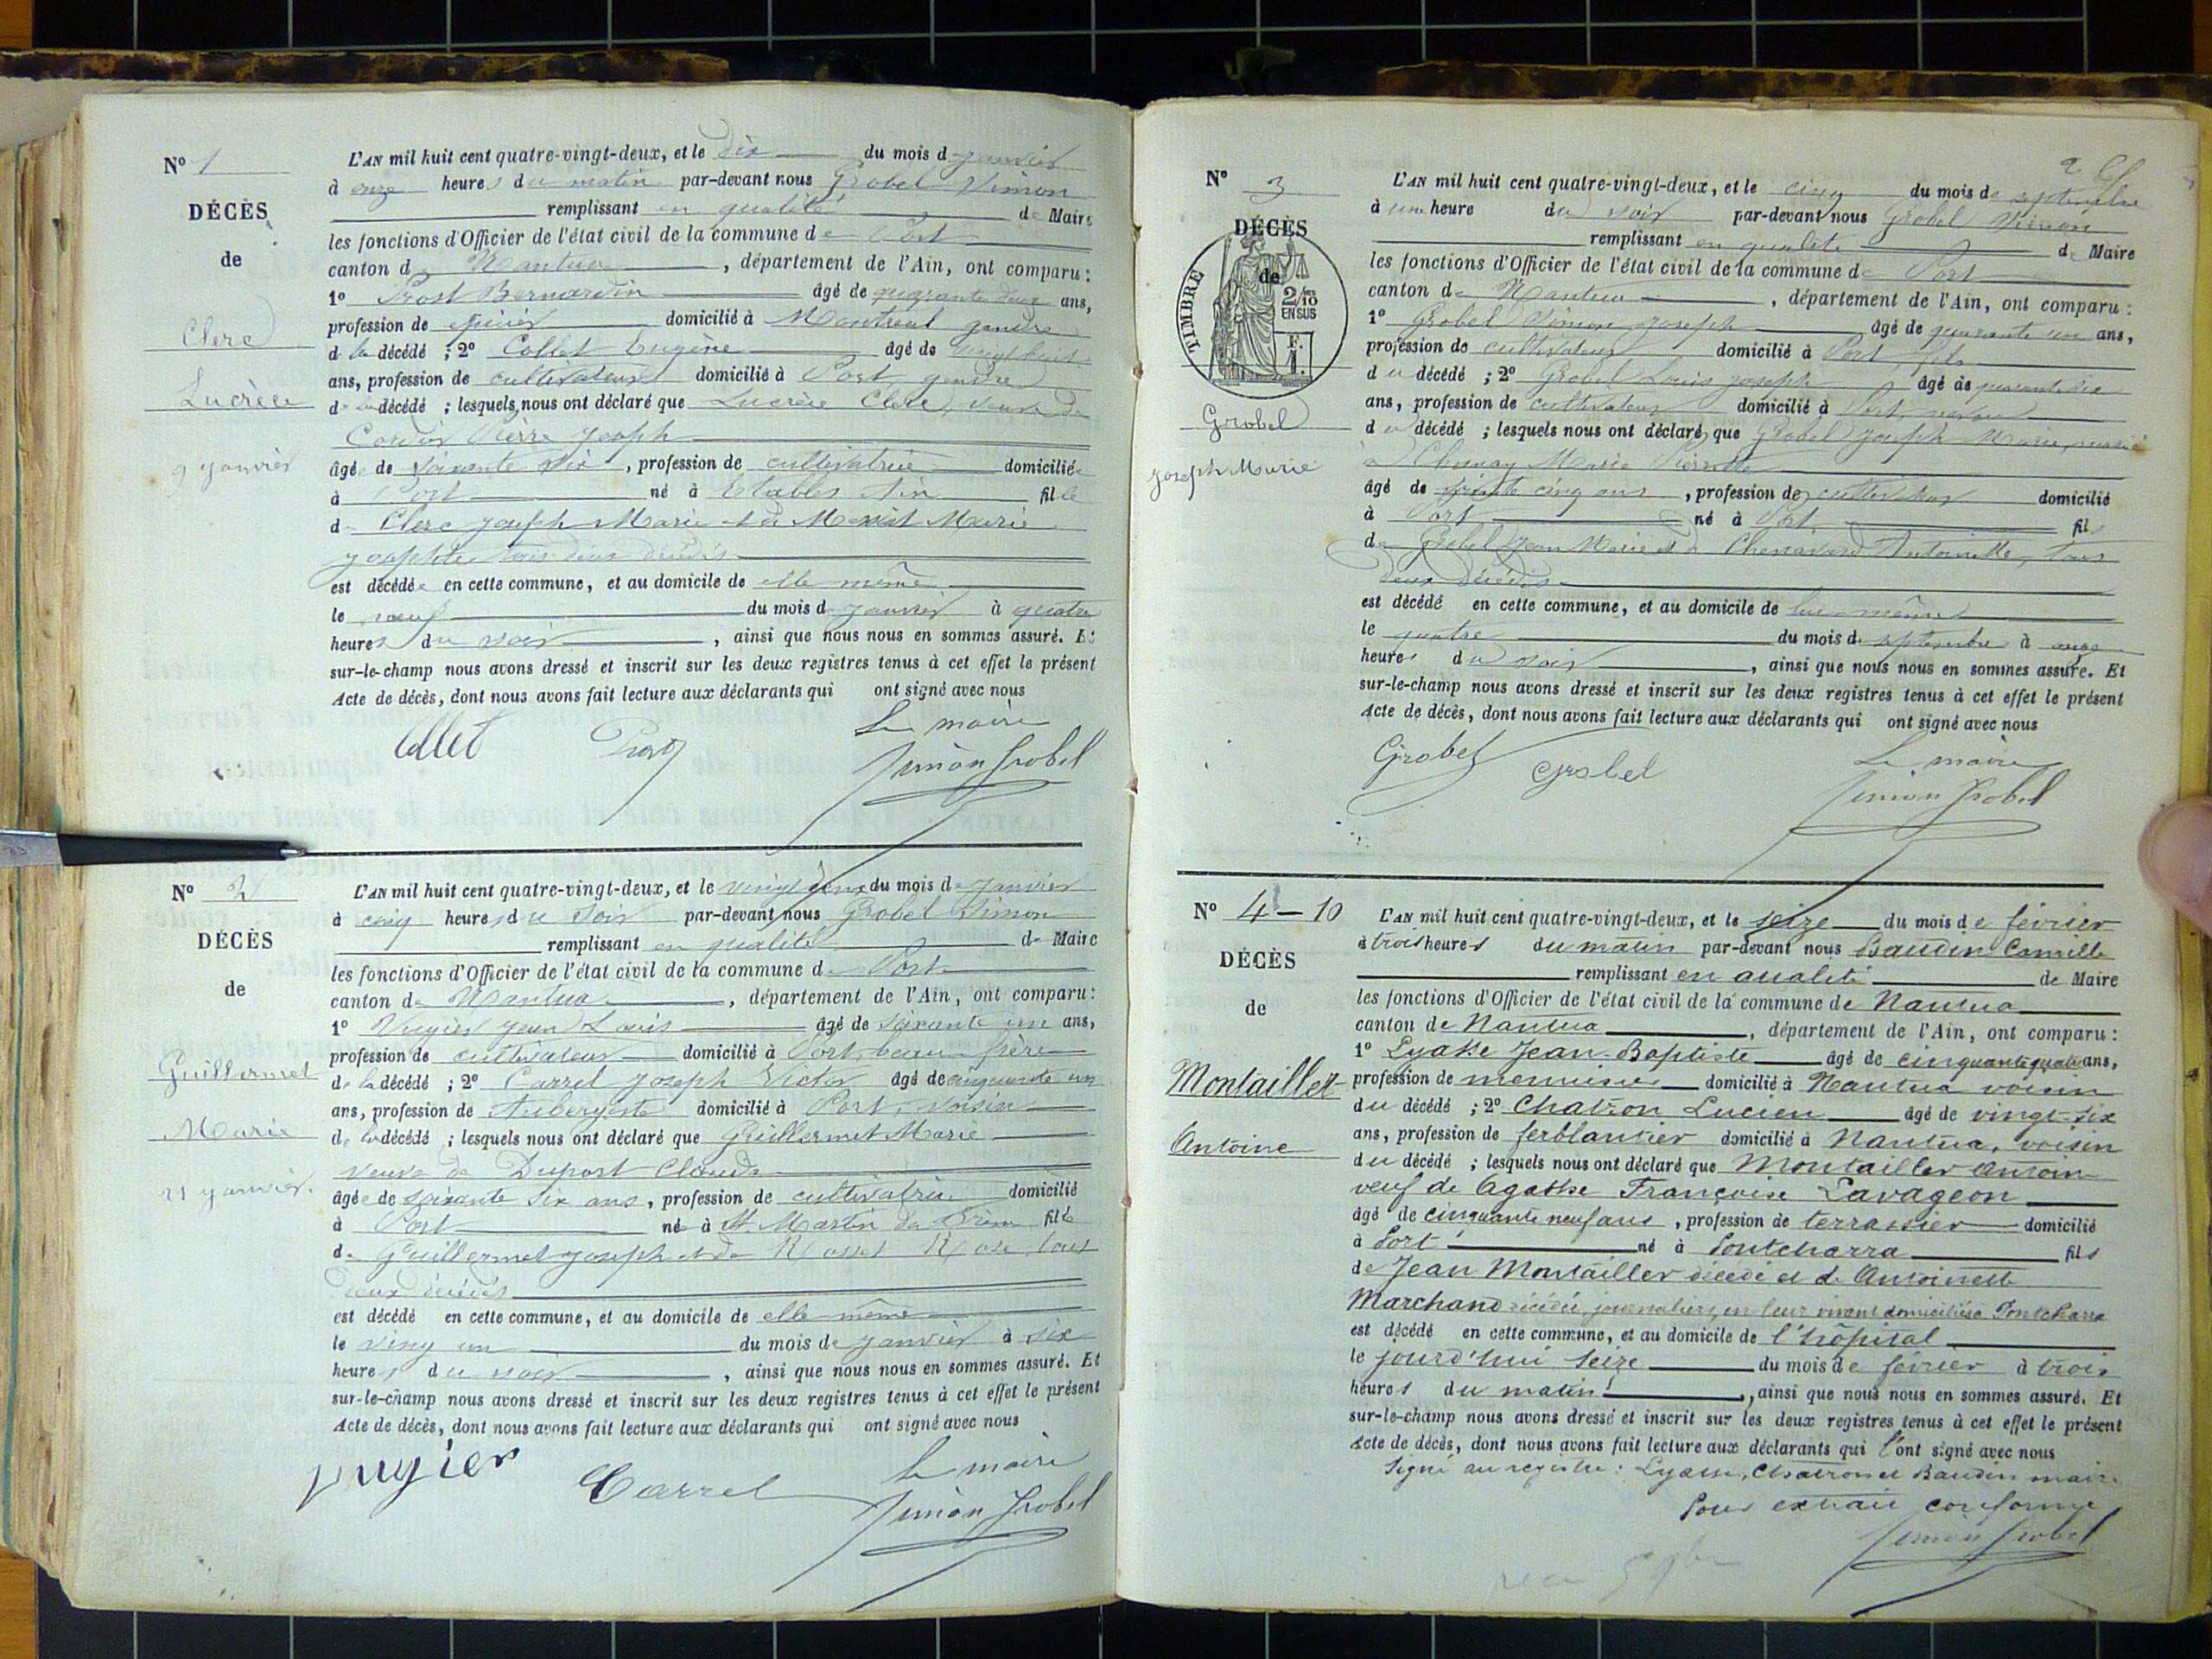 N° 1
DÉCÈS
de
Clerc
Lucrèce
9 janvier
L'AN mil huit cent quatre-vingt-deux, et le dix du mois d janvier
à onze heures du matin par-devant nous Grobel Simon
remplissant en qualité de Maire
les fonctions d'Officier de l'état civil de la commune de Port
canton d Nantua, département de l'Ain, ont comparu :
1° Prost Bernardin âgé de quarante deux ans,
profession de épicier domicilié à Montreal gendre
d la décédé ; 2° Collet Eugène âgé de vingt huit
ans, profession de cultivateur domicilié à Port, gendre
de la décédé ; lesquels nous ont déclaré que Lucrèce Clerc, veuve de
Cordier Pierre Joseph
âgée de soixante six, profession de cultivatrice domiciliée
à Port né à Etables Ain fille
de Clerc Joseph Marie et de Marie
Josephte, tous deux décédés
est décédée en cette commune, et au domicile de elle même
le neuf du mois d janvier à quatre
heures du soir, ainsi que nous nous en sommes assuré. Et
sur-le-champ nous avons dressé et inscrit sur les deux registres tenus à cet effet le présent
Acte de décès, dont nous avons fait lecture aux déclarants qui ont signé avec nous
Le maire
Collet Prost Simon Grobel
N° 2
DÉCÈS
de
Guillermet
Marie
21 janvier.
L'AN mil huit cent quatre-vingt-deux, et le vingt deux du mois de janvier
à cinq heures du soir par-devant nous Grobel Simon
remplissant en qualité de Maire
les fonctions d'Officier de l'état civil de la commune de Port
canton de Nantua, département de l'Ain, ont comparu :
1° Jean Louis âgé de soixante un ans,
profession de cultivateur domicilié à Port, beau-frère
de la décédé ; 2° Carrel Joseph Victor âgé de cinquante un
ans, profession de Aubergiste domicilié à Port, voisin
de la décédé ; lesquels nous ont déclaré que Guillermet Marie
veuve de Dupost Claude
âgée de soixante six ans, profession de cultivatrice domicilié
à Port né à St Martin du Frêne fille
de Guillermet Joseph et de Rose, tous
deux décédés
est décédé en cette commune, et au domicile de elle-même
le vingt un du mois de janvier à six
heures du soir, ainsi que nous nous en sommes assuré. Et
sur-le-champ nous avons dressé et inscrit sur les deux registres tenus à cet effet le présent
Acte de décès, dont nous avons fait lecture aux déclarants qui ont signé avec nous
Le maire
Carrel Simon Grobel
2
N° 3
DÉCÈS
de
TIMBRE
2/10
EN SUS
F.
Grobel
Joseph Marie
L'AN mil huit cent quatre-vingt-deux, et le cinq du mois de septembre
à une heure du soir par-devant nous Grobel Simon
remplissant en qualité de Maire
les fonctions d'Officier de l'état civil de la commune de Port
canton de Nantua, département de l'Ain, ont comparu :
1° Grobel Simon Joseph âgé de quarante un ans,
profession de cultivateur domicilié à Port, fils
du décédé ; 2° Grobel Louis Joseph âgé de quarante six
ans, profession de cultivateur domicilié à Port,
du décédé ; lesquels nous ont déclaré, que Grobel Joseph Marie, marié
à Marie Pierrette
âgé de cinq ans, profession de cultivateur domicilié
à Port né à Port fils
de Grobel Jean Marie et de Chenavard Antoinette, tous
deux décédés
est décédé en cette commune, et au domicile de lui-même
le quatre du mois de septembre à onze
heures du soir, ainsi que nous nous en sommes assuré. Et
sur-le-champ nous avons dressé et inscrit sur les deux registres tenus à cet effet le présent
Acte de décès, dont nous avons fait lecture aux déclarants qui ont signé avec nous
Le maire
Grobel Grobel Simon Grobel
N° 4 - 10
DÉCÈS
de
Montailler
Antoine
L'AN mil huit cent quatre-vingt-deux, et le seize du mois de février
à trois heures du matin par-devant nous Baudin Camille
remplissant en qualité de Maire
les fonctions d'Officier de l'état civil de la commune de Nantua
canton de Nantua, département de l'Ain, ont comparu :
1° Jean-Baptiste âgé de cinquante quatre ans,
profession de menuisier domicilié à Nantua voisin
du décédé ; 2° Chatron Lucien âgé de vingt-six
ans, profession de ferblantier domicilié à Nantua, voisin
du décédé ; lesquels nous ont déclaré que Montailler Antoine
veuf de Agathe Françoise Lavageon
âgé de cinquante neuf ans, profession de terrassier domicilié
à Port né à Pontcharra fils
de Jean Montailler décédé et de Antoinette
Marchand décédée, journaliers, en leur vivant domiciliés à Pontcharra
est décédé en cette commune, et au domicile de l'hôpital
le jourd'hui seize du mois de février à trois
heures du matin, ainsi que nous nous en sommes assuré. Et
sur-le-champ nous avons dressé et inscrit sur les deux registres tenus à cet effet le présent
Acte de décès, dont nous avons fait lecture aux déclarants qui l'ont signé avec nous
Signé au registre : Chatron et Baudin maire
Pour extrait conforme
Simon Grobel